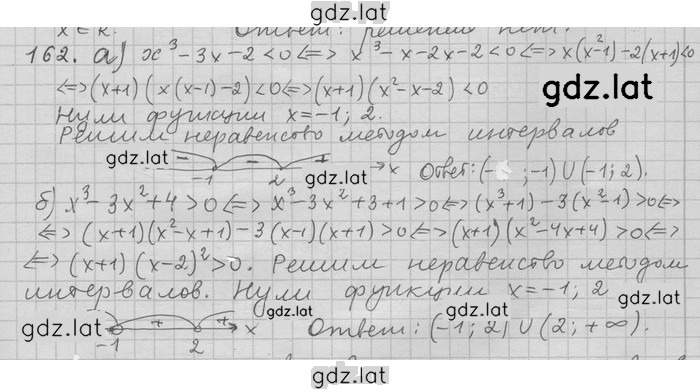 gdz.lat
x ∈ R. Ответ: решений нет.
162. а) x³-3x-2<0 <=> x³-x-2x-2<0 <=> x(x²-1)-2(x+1)<0
<=> (x+1)(x(x-1)-2)<0 <=> (x+1)(x²-x-2)<0
gdz.lat
Нули функции x=-1; 2.
Решим неравенство методом интервалов
gdz.lat
- - + →x
-1 2
gdz.lat
Ответ: (- ; -1) ∪ (-1; 2).
gdz.lat
б) x³-3x²+4>0 <=> x³-3x²+3+1>0 <=> (x³+1)-3(x²-1)>0 <=>
<=> (x+1)(x²-x+1)-3(x-1)(x+1)>0 <=> (x+1)(x²-4x+4)>0 <=>
<=> (x+1)(x-2)²>0. Решим неравенство методом
интервалов. Нули функции x=-1; 2
gdz.lat
gdz.lat
gdz.lat
+ + x
-1 2
Ответ: (-1; 2) ∪ (2; +∞).
gdz.lat
gdz.lat